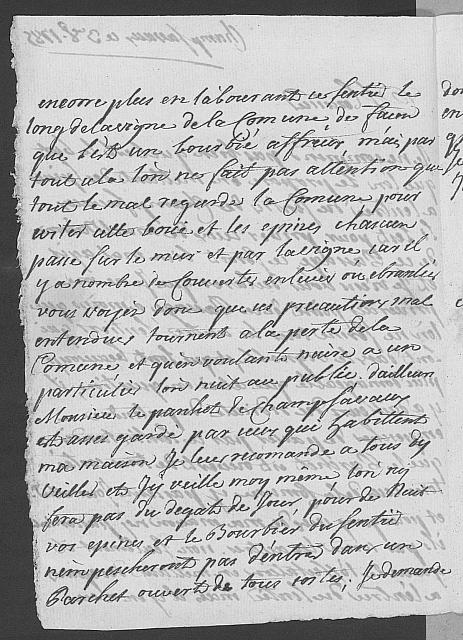 encore plus en labourant ce sentié le
long de la vigne de la Comune, de facon
que c'est un bourbié affreux, mais par
tout cela l'on ne fait pas attention que
tout le mal regarde la Comune pour
eviter cette boüe et les epines chascun
passe sur le mur et par la vigne, car il
y a nombre de Couvertes enlevées ou ebranlées
vous voyez donc que ces precautions mal
entendues tournent a la perte de la
Comune, et qu'en voulant nuire a un
particulier l'on nuit au public. d'ailleurs
Monsieur le parchet de Champ Savaux
est asses gardé par ceux qui habittent
ma maison Je leur recomande a tous d'y
veiller et J'y veille moy même l'on n'y
fera pas du degat de Jour, pour de Nuit
vos epines et le Bourbier du sentié
n'empescheront pas d'entré dans un
Parchet ouvert de tous cotes, Je demande